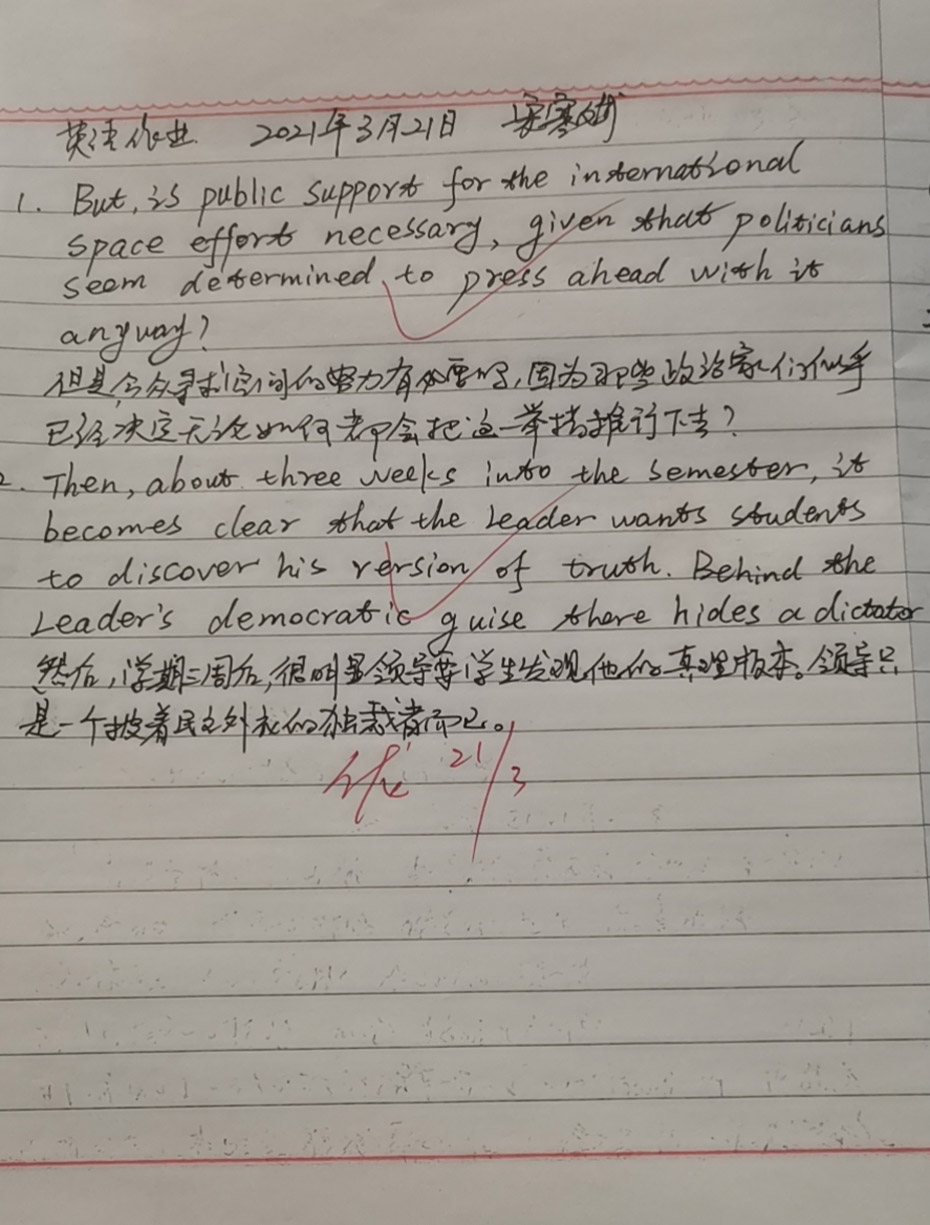 英语作业 2021年3月21日
1. But, is public support for the international
space effort necessary, given that politicians
seem determined to press ahead with it
anyway?
但是公众寻求空间的努力有必要吗,因为那些政治家们似乎
已经决定无论如何都会把这一举措推行下去?
2. Then, about three weeks into the semester, it
becomes clear that the Leader wants students
to discover his version of truth. Behind the
Leader's democratic guise there hides a dictator
然后,学期三周后,很明显领导要学生发现他的真理版本。领导只
是一个披着民主外衣的独裁者而已。
优 21/3